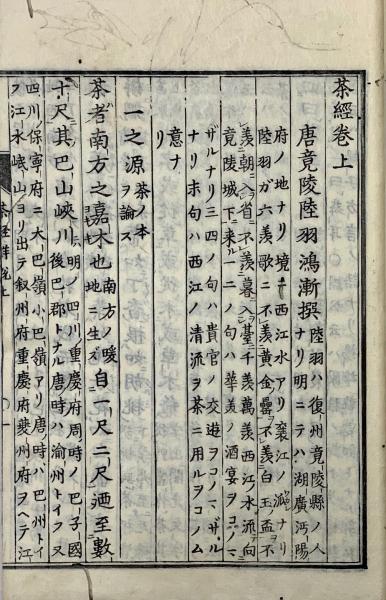 茶經卷上
唐竟陵陸羽鴻漸撰 陸羽ハ復州竟陵縣ノ人
ナリ明ニテハ湖廣沔陽
府ノ地ナリ境ニ西江水アリ襄江ノ派ナリ
陸羽ガ六羨歌ニ不羨黃金罍不羨白玉盃不
羨朝ニ入省不羨暮入臺千羨萬羨西江水流向
竟陵城下來ル一二ノ句ハ華美ノ酒宴ヲコノマ
ザルナリ三四ノ句ハ貴官ノ交遊ヲコノマザル
ナリ末句ハ西江ノ清流ヲ茶ニ用ルヲコノム
意ナ
リ
一之源 茶ノ本
ヲ論ス
茶者南方之嘉木也 南方ノ暖
地ニ生ス 自一尺二尺廼至數
十尺其巴山峽川 明ノ四川ノ重慶府周時ノ巴子國
後巴郡トナル唐時ハ渝州トイフ又
四川ノ保寧府ニ大巴嶺小巴嶺アリ唐ノ時ハ巴州トイ
フ江水峨山ヨリ出テ叙州府重慶府夔州府ヲヘテ江
茶經詳説上